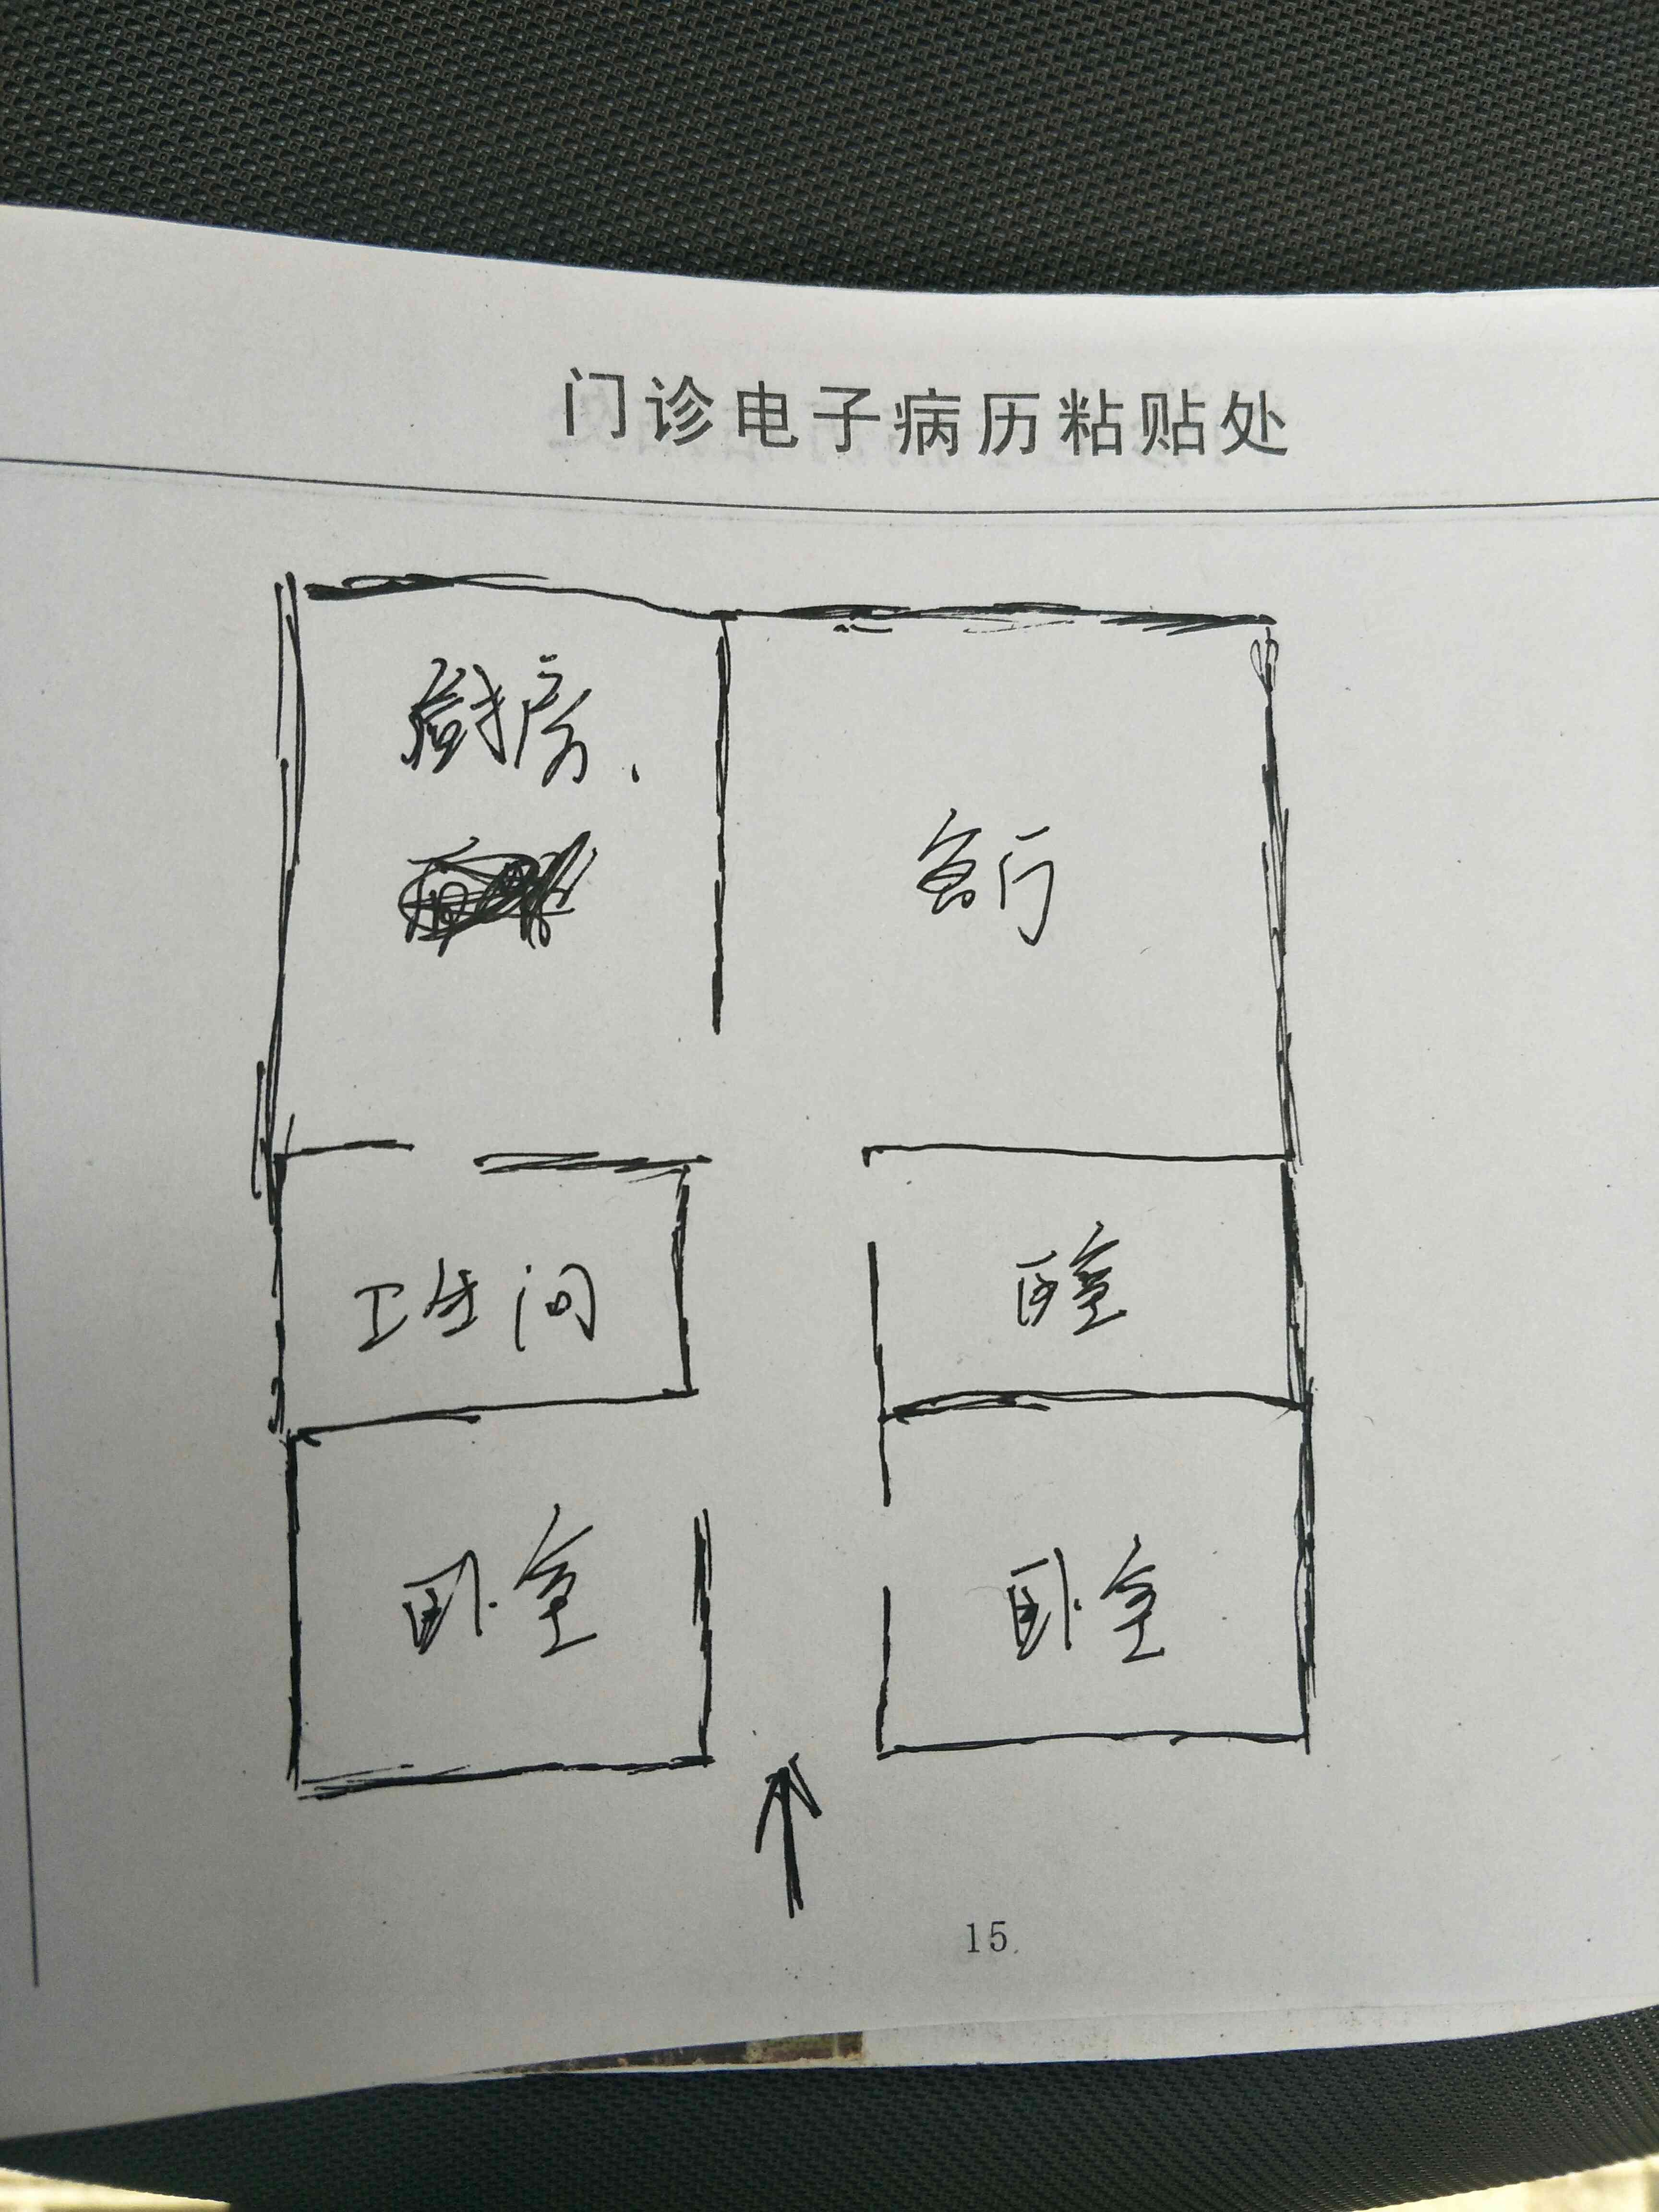 门诊电子病历粘贴处
厨房、
客厅
卫生间
卧室
卧室
卧室
15